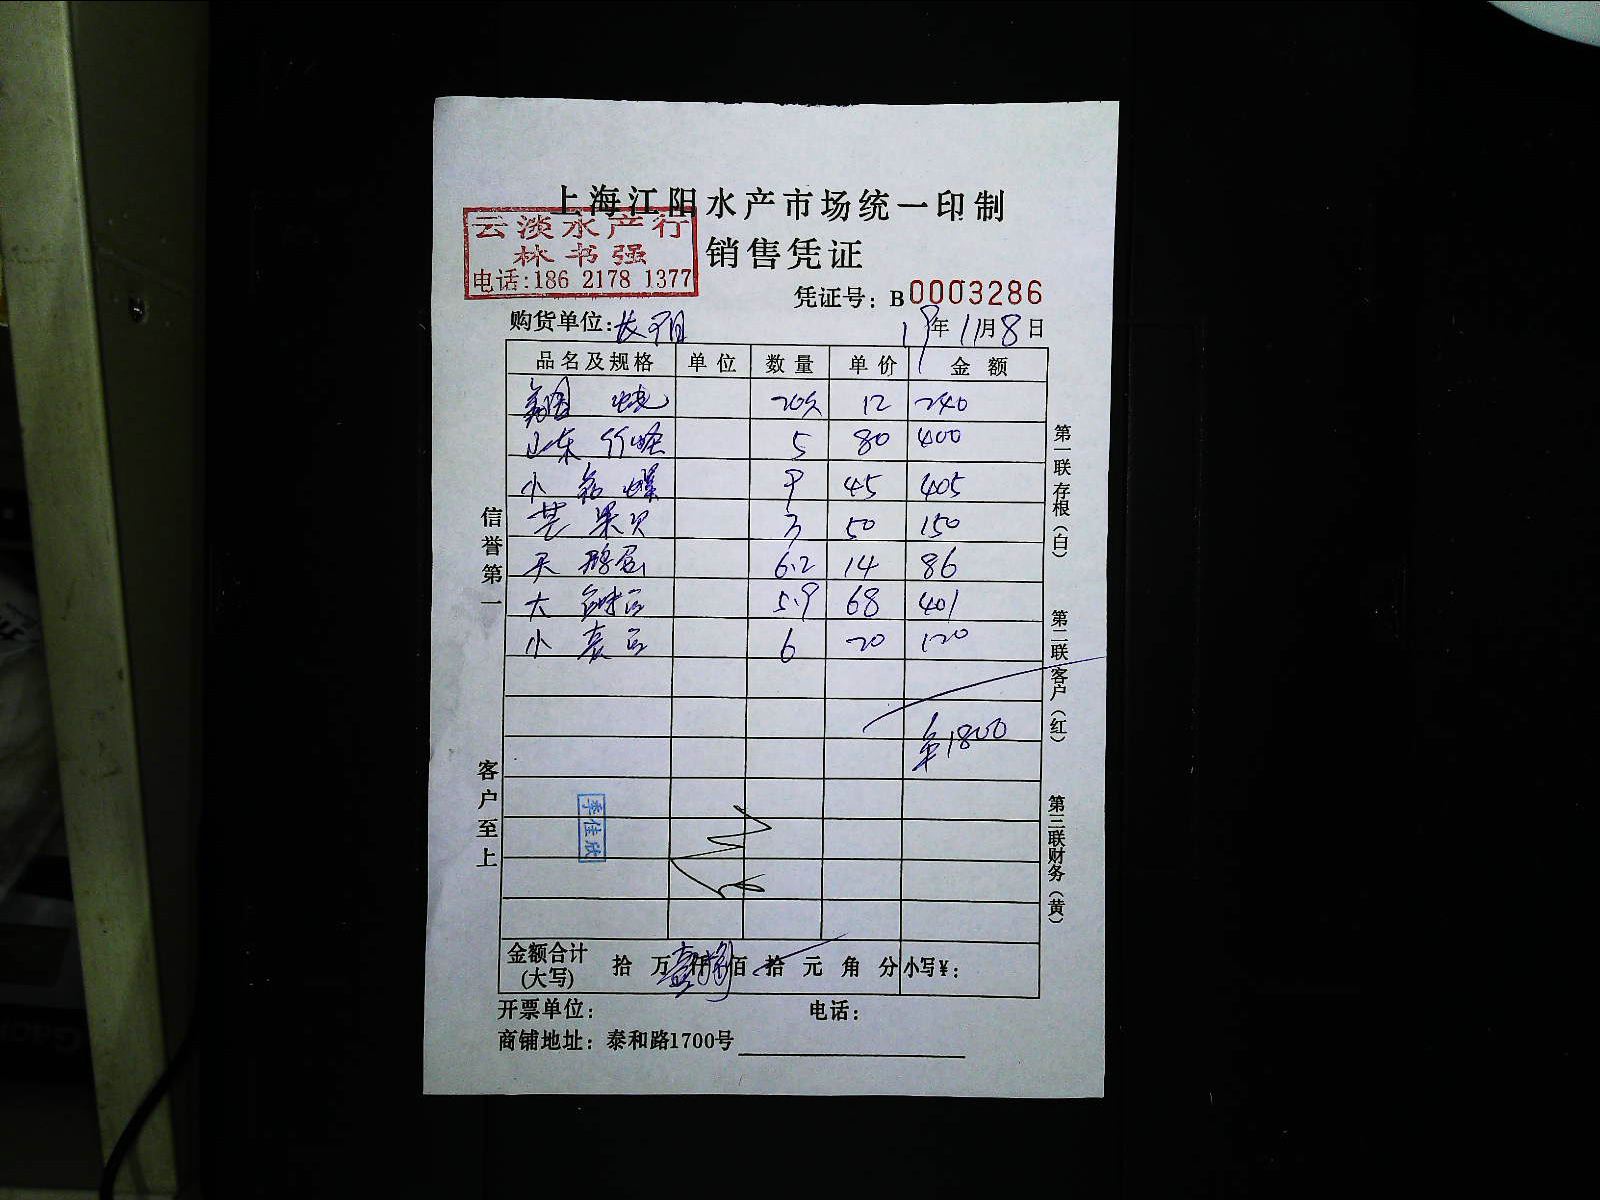 上海江阳水产市场统一印制
云淡水产行
林书强
电话:186 2178 1377
销售凭证
凭证号: B0003286
购货单位:长阳 19年11月8日
品名及规格 单位 数量 单价 金额
20 12 240
山东竹蛏 5 80 400
小 螺 9 45 405
芒果贝 3 50 150
天鹅蛋 6.2 14 86
大 5.9 68 401
小 6 20 120
¥1800
季佳欣
金额合计(大写) 拾 万 壹仟捌佰 拾 元 角 分 小写¥:
开票单位: 电话:
商铺地址: 泰和路1700号
信誉第一
客户至上
第一联存根(白)
第二联客户(红)
第三联财务(黄)